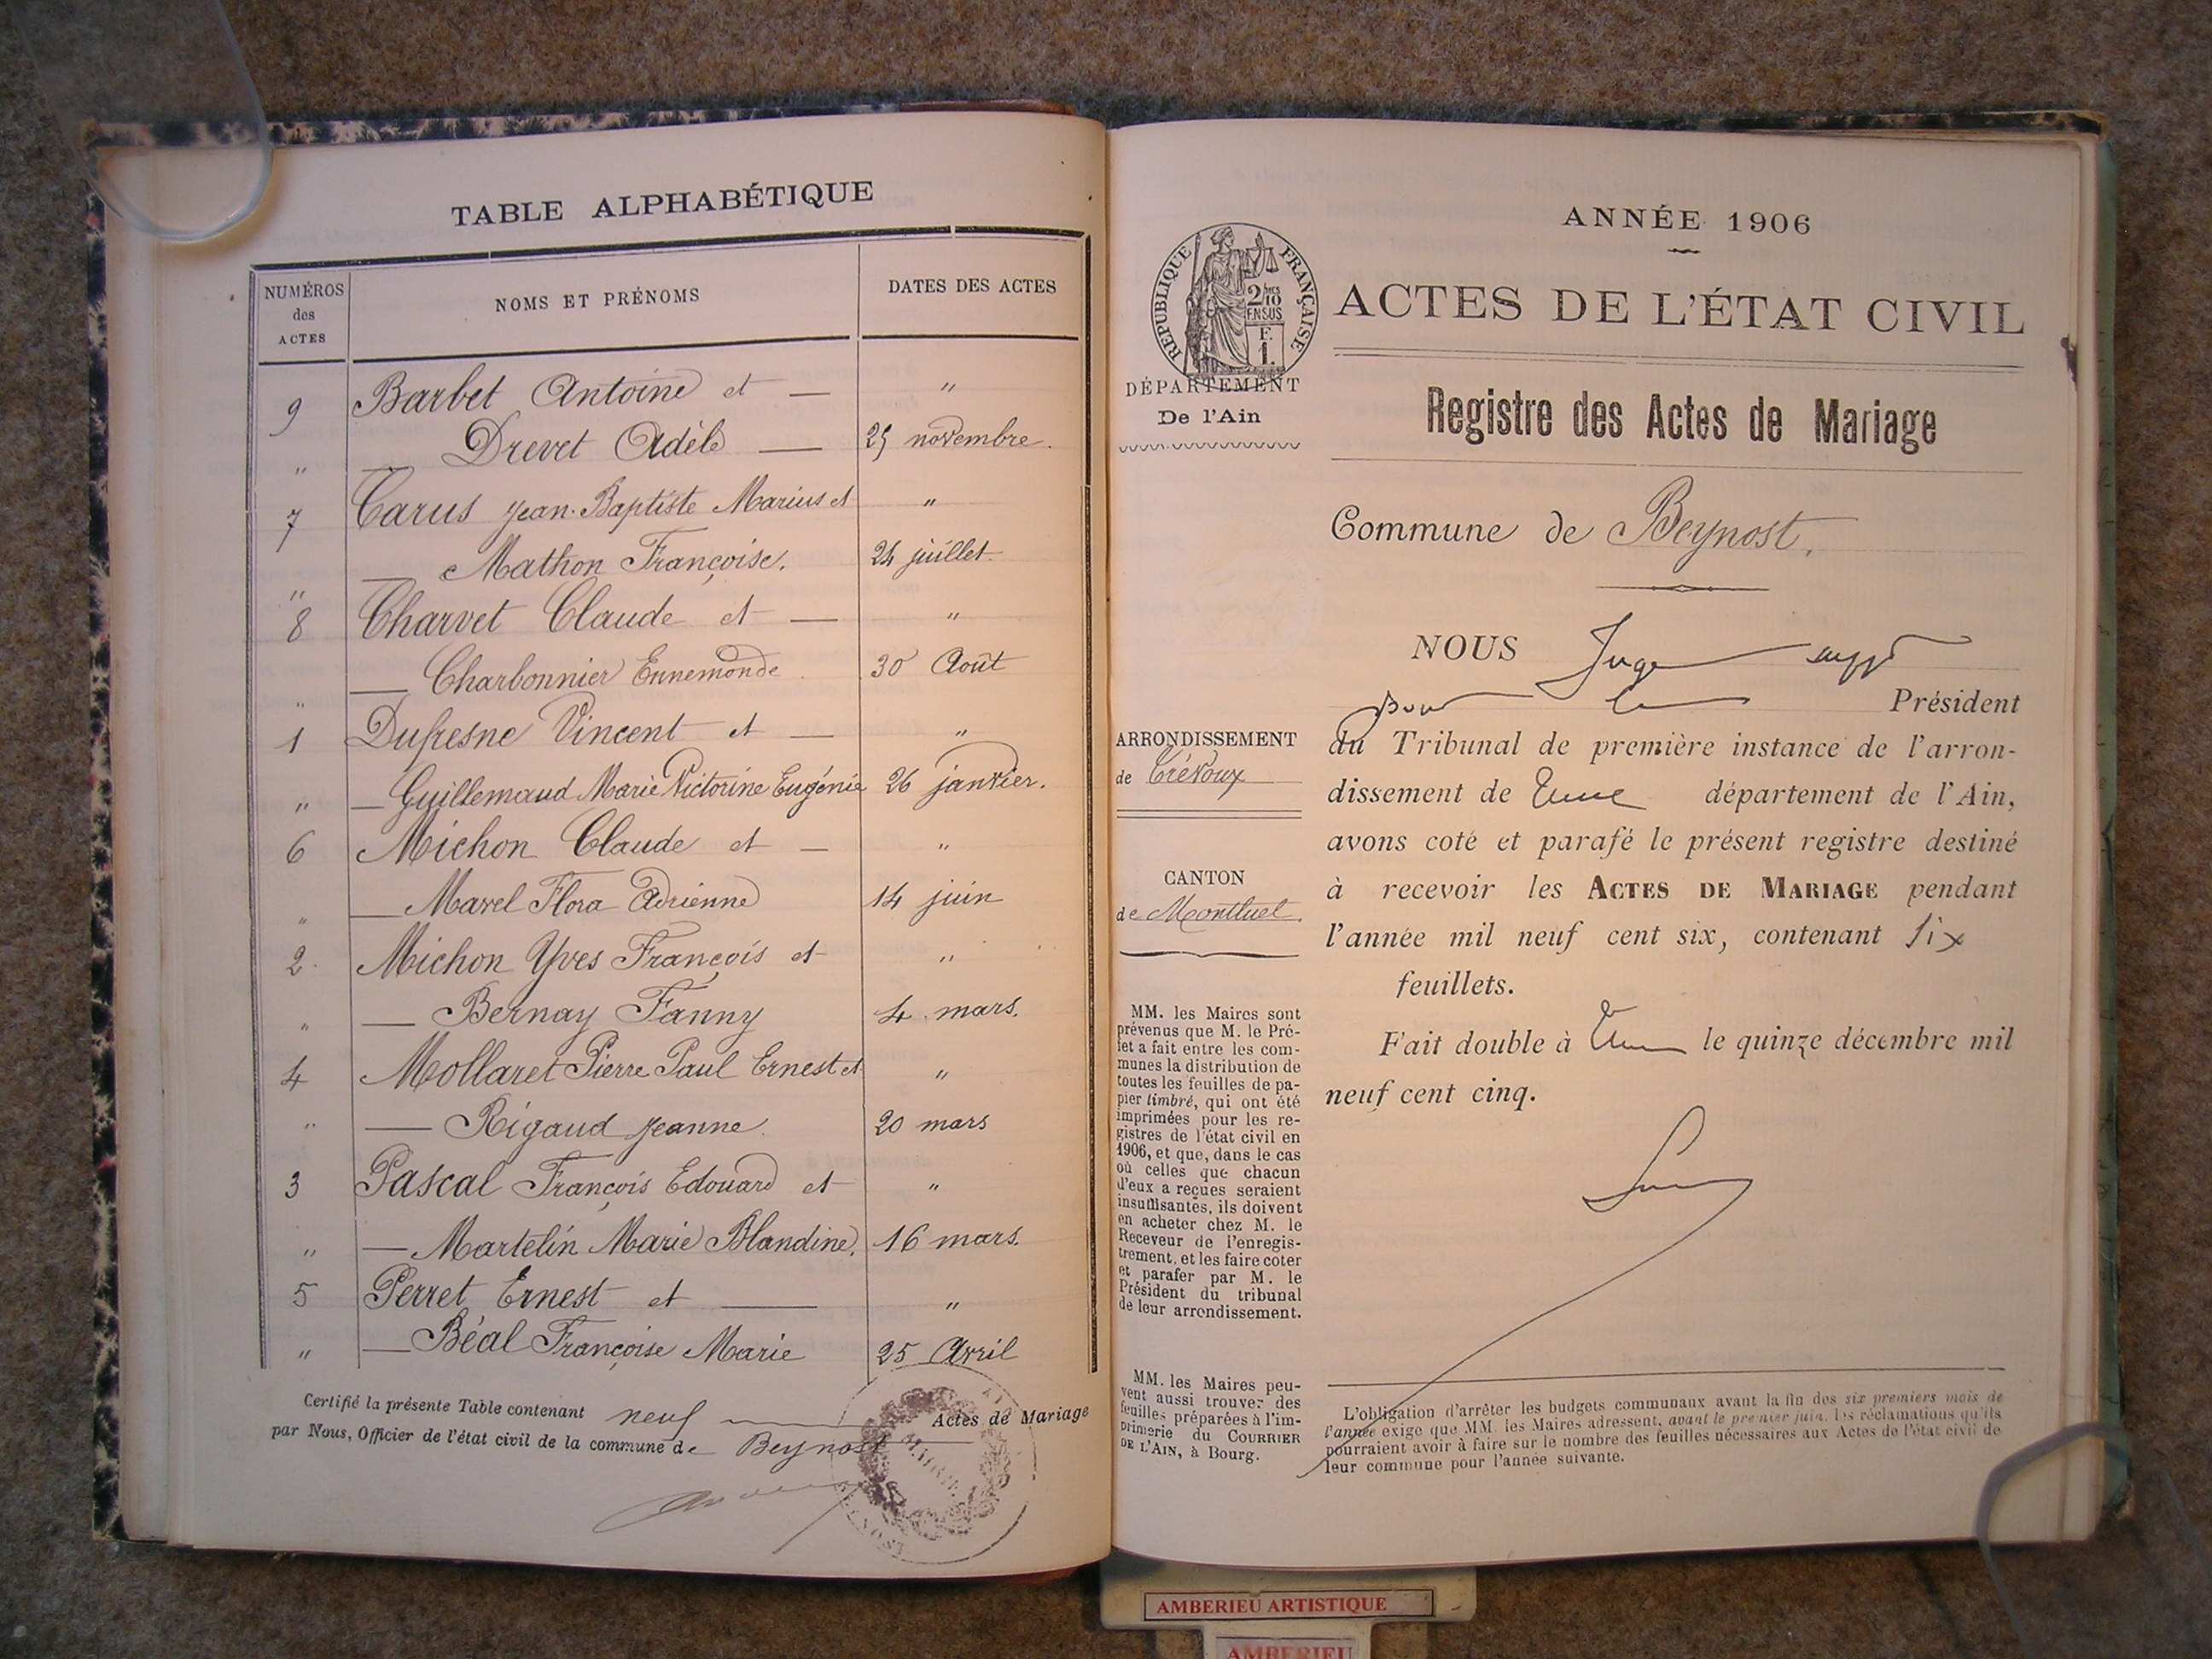 TABLE ALPHABÉTIQUE
NUMÉROS des ACTES
NOMS ET PRÉNOMS
DATES DES ACTES
9 Barbet Antoine et — "
" Drevet Adèle — 25 novembre.
7 Carus Jean-Baptiste Marius et "
" — Mathon Françoise. 24 juillet
8 Charvet Claude et — "
" — Charbonnier Ennemonde 30 Août
1 Dufresne Vincent et — "
" — Guillemaud Marie Victorine Eugénie 26 janvier.
6 Michon Claude et — "
" — Marel Flora Adrienne 14 juin
2 Michon Yves François et "
" — Bernay Fanny 4 mars.
4 Mollaret Pierre Paul Ernest et "
" — Rigaud Jeanne 20 mars
3 Pascal François Edouard et "
" — Martelin Marie Blandine. 16 mars.
5 Perret Ernest et — "
" — Béal Françoise Marie 25 Avril
Certifié la présente Table contenant neuf — Actes de Mariage
par Nous, Officier de l'état civil de la commune de Beynost
MAIRIE
RÉPUBLIQUE FRANÇAISE
2/10 EN SUS
F. 1.
DÉPARTEMENT
De l'Ain
ARRONDISSEMENT
de Trévoux
CANTON
de Montluel.
MM. les Maires sont
prévenus que M. le Pré-
fet a fait entre les com-
munes la distribution de
toutes les feuilles de pa-
pier timbré, qui ont été
imprimées pour les re-
gistres de l'état civil en
1906, et que, dans le cas
où celles que chacun
d'eux a reçues seraient
insuffisantes, ils doivent
en acheter chez M. le
Receveur de l'enregis-
trement, et les faire coter
et parafer par M. le
Président du tribunal
de leur arrondissement.
MM. les Maires peu-
vent aussi trouver des
feuilles préparées à l'im-
primerie du COURRIER
DE L'AIN, à Bourg.
ANNÉE 1906
ACTES DE L'ÉTAT CIVIL
Registre des Actes de Mariage
Commune de Beynost.
NOUS Juge suppt
pour le Président
du Tribunal de première instance de l'arron-
dissement de département de l'Ain,
avons coté et parafé le présent registre destiné
à recevoir les ACTES DE MARIAGE pendant
l'année mil neuf cent six, contenant six
feuillets.
Fait double à le quinze décembre mil
neuf cent cinq.
L'obligation d'arrêter les budgets communaux avant la fin des six premiers mois de
l'année exige que MM. les Maires adressent, avant le premier juin, les réclamations qu'ils
pourraient avoir à faire sur le nombre des feuilles nécessaires aux Actes de l'état civil de
leur commune pour l'année suivante.
AMBERIEU ARTISTIQUE
AMBERIEU